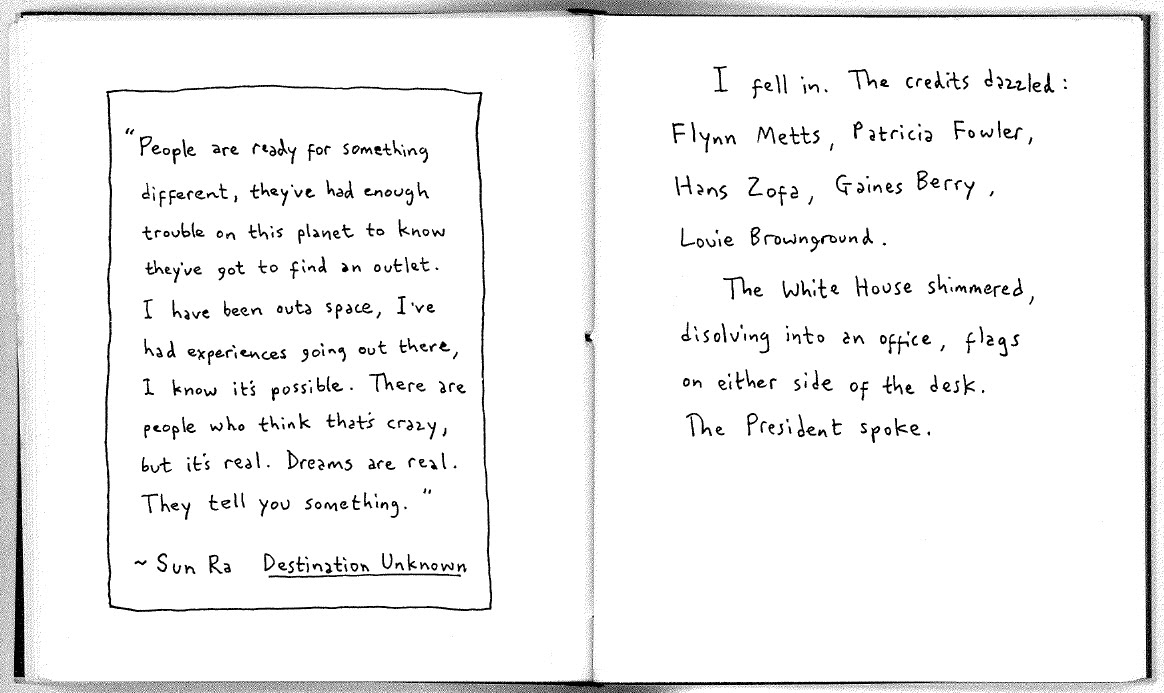 "People are ready for something
different, they've had enough
trouble on this planet to know
they've got to find an outlet.
I have been outa space, I've
had experiences going out there,
I know it's possible. There are
people who think that's crazy,
but it's real. Dreams are real.
They tell you something."
~ Sun Ra Destination Unknown
I fell in. The credits dazzled:
Flynn Metts, Patricia Fowler,
Hans Zofa, Gaines Berry,
Louie Brownground.
The White House shimmered,
disolving into an office, flags
on either side of the desk.
The President spoke.